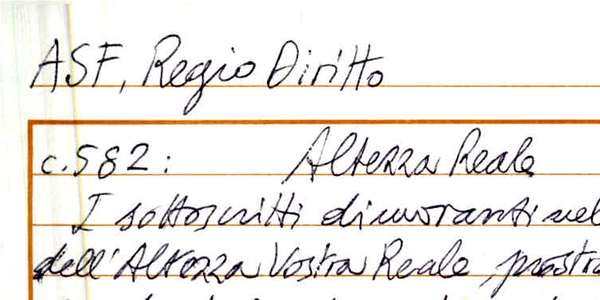 ASF, Regio Diritto
c. 582: Altezza Reale
I sottoscritti dimoranti nel
dell'Altezza Vostra Reale prostra